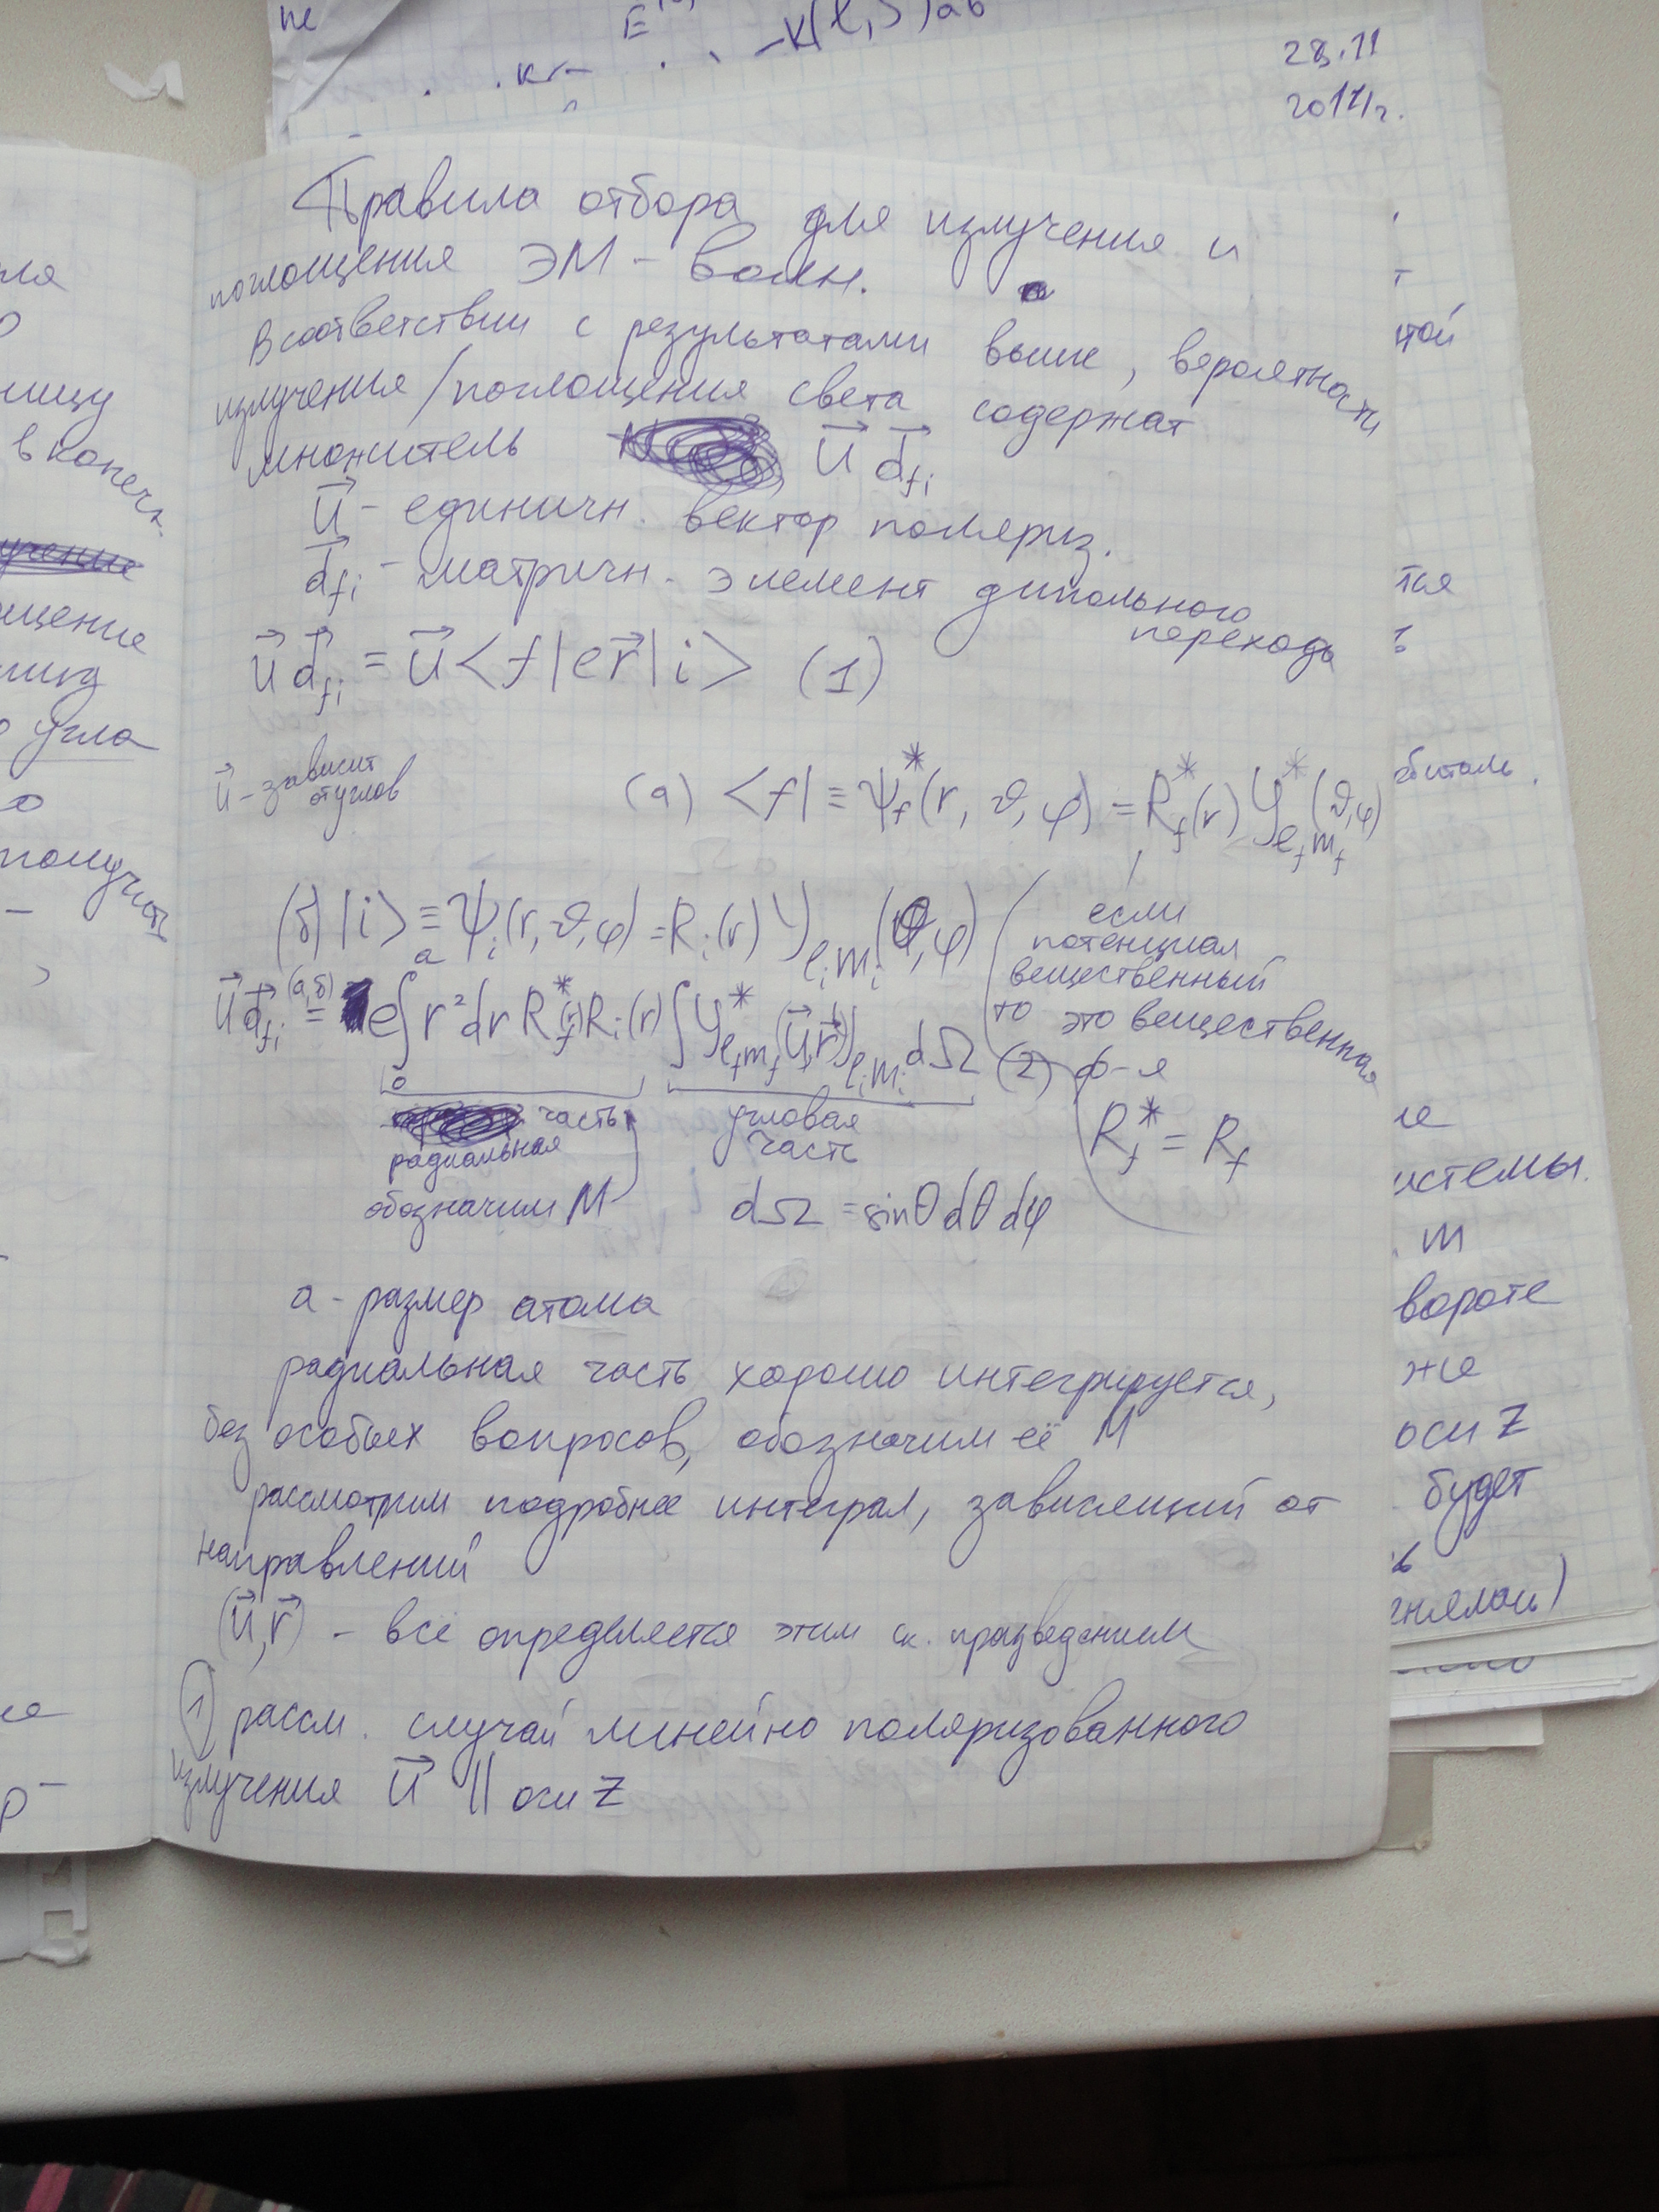 28.11
2017г.
Правила отбора для излучения и
поглощения ЭМ - волн.
В соответствии с результатами выше, вероятность
излучения/поглощения света содержат
множитель u⃗ d⃗_fi
u⃗ - единичн. вектор поляриз.
d⃗_fi - матричн. элемент дипольного
перехода
u⃗ d⃗_fi = u⃗ <f|er⃗|i> (1)
u⃗ - зависит
от углов
(а) <f| ≡ ψ_f^*(r, ϑ, φ) = R_f^*(r) Y^*_{l_f m_f}(ϑ,φ)
(б) |i> ≡ ψ_i(r, ϑ, φ) = R_i(r) Y_{l_i m_i}(θ,φ)
если
потенциал
вещественный
то это вещественная
ф-я
R_f^* = R_f
u⃗ d⃗_fi (а,б)= e ∫_0^a r² dr R_f^*(r) R_i(r) ∫ Y^*_{l_f m_f} (u⃗, r⃗) Y_{l_i m_i} dΩ (2)
часть
радиальная
обозначим M
угловая
часть
dΩ = sinθ dθ dφ
a - размер атома
радиальная часть хорошо интегрируется,
без особых вопросов, обозначим её M
рассмотрим подробнее интеграл, зависящий от
направлений
(u⃗, r⃗) - всё определяется этим ск. произведением
① рассм. случай линейно поляризованного
излучения u⃗ || оси z
ницу
в конечн.
угла
получить
истемы.
m
вороте
же
оси z
будет